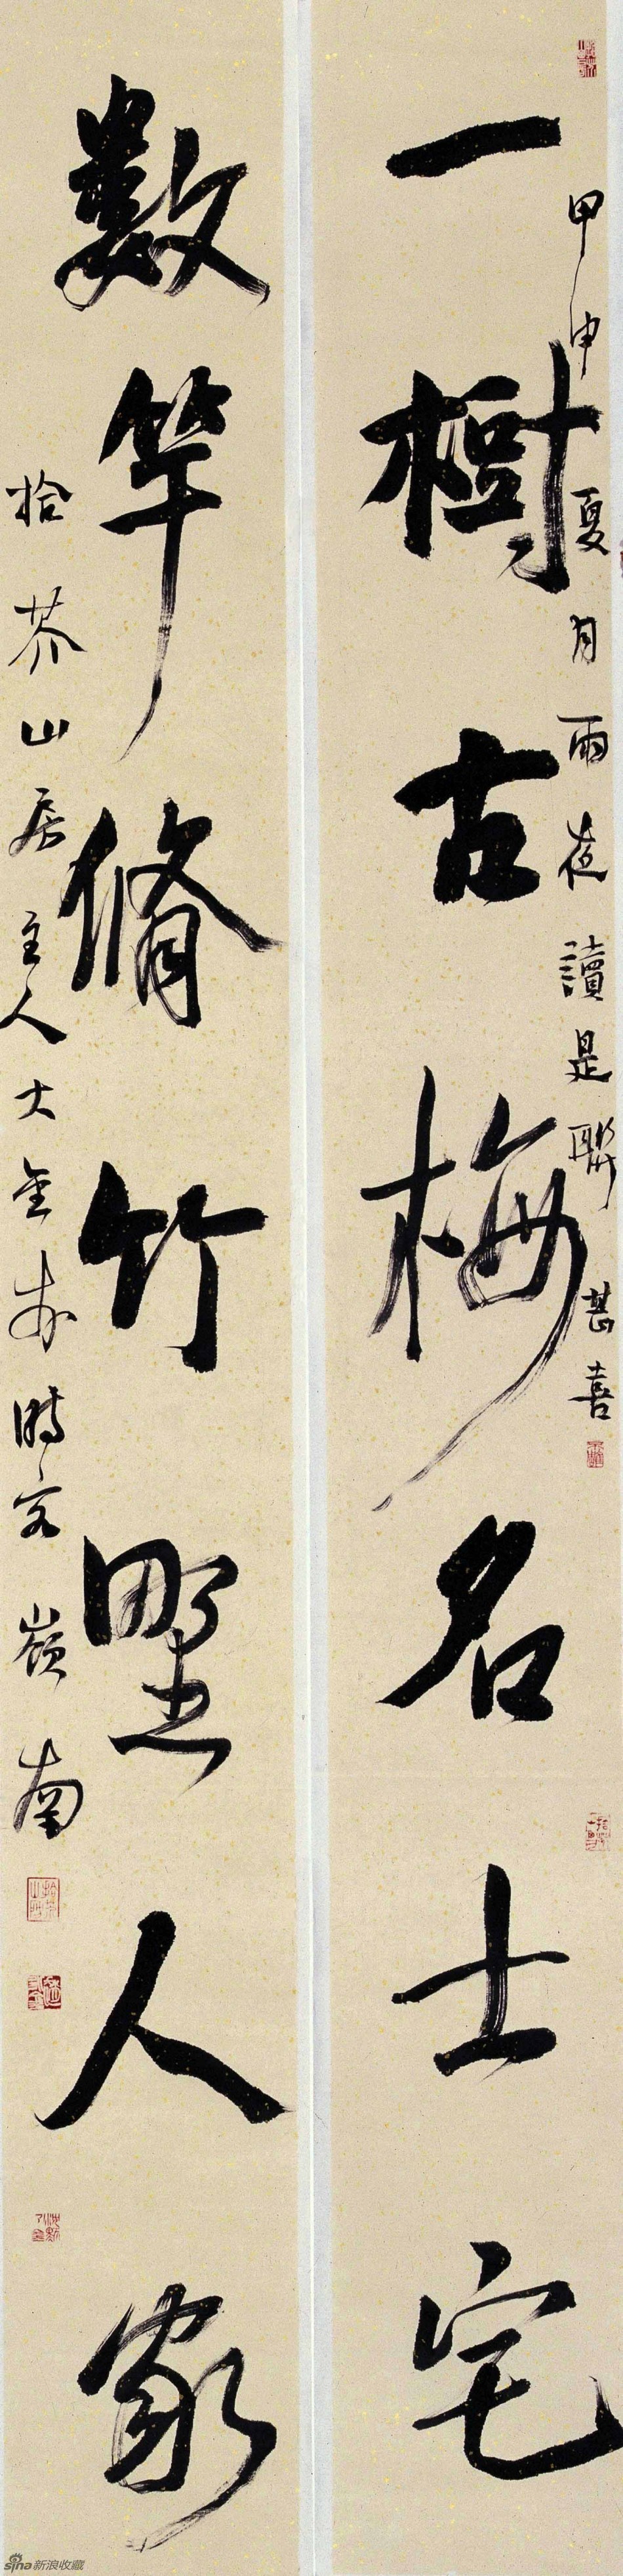 甲申夏月雨夜讀是聯甚喜
一樹古梅名士宅
數竿脩竹野人家
拾芥山居主人大金 時客嶺南
sina新浪收藏